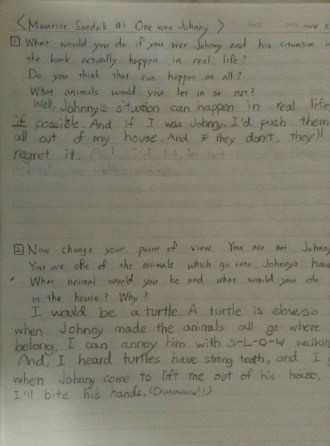 <Maurice Sendak #1 One was Johnny>
1 What would you do if you wer Johnny and his situation in
the book actually happen in real life?
Do you think that can happen at all?
What animals would you let in or not?
Well, Johnny's situation can happen in real life,
if possible. And if I was Johnny, I'd push them
all out of my house. And if they don't, they'll
regret it.
2 Now change your point of view. You are not Johnny
You are one of the animals which go into Johnny's house
What animal would you be and what would you do
in the house? Why?
I would be a turtle. A turtle is slow, so
when Johnny made the animals all go where
belong, I can annoy him with S-L-O-W walkin
And, I heard turtles have strong teeth, and I
when Johnny come to lift me out of his house,
I'll bite his hands. (Ouwwww!!)